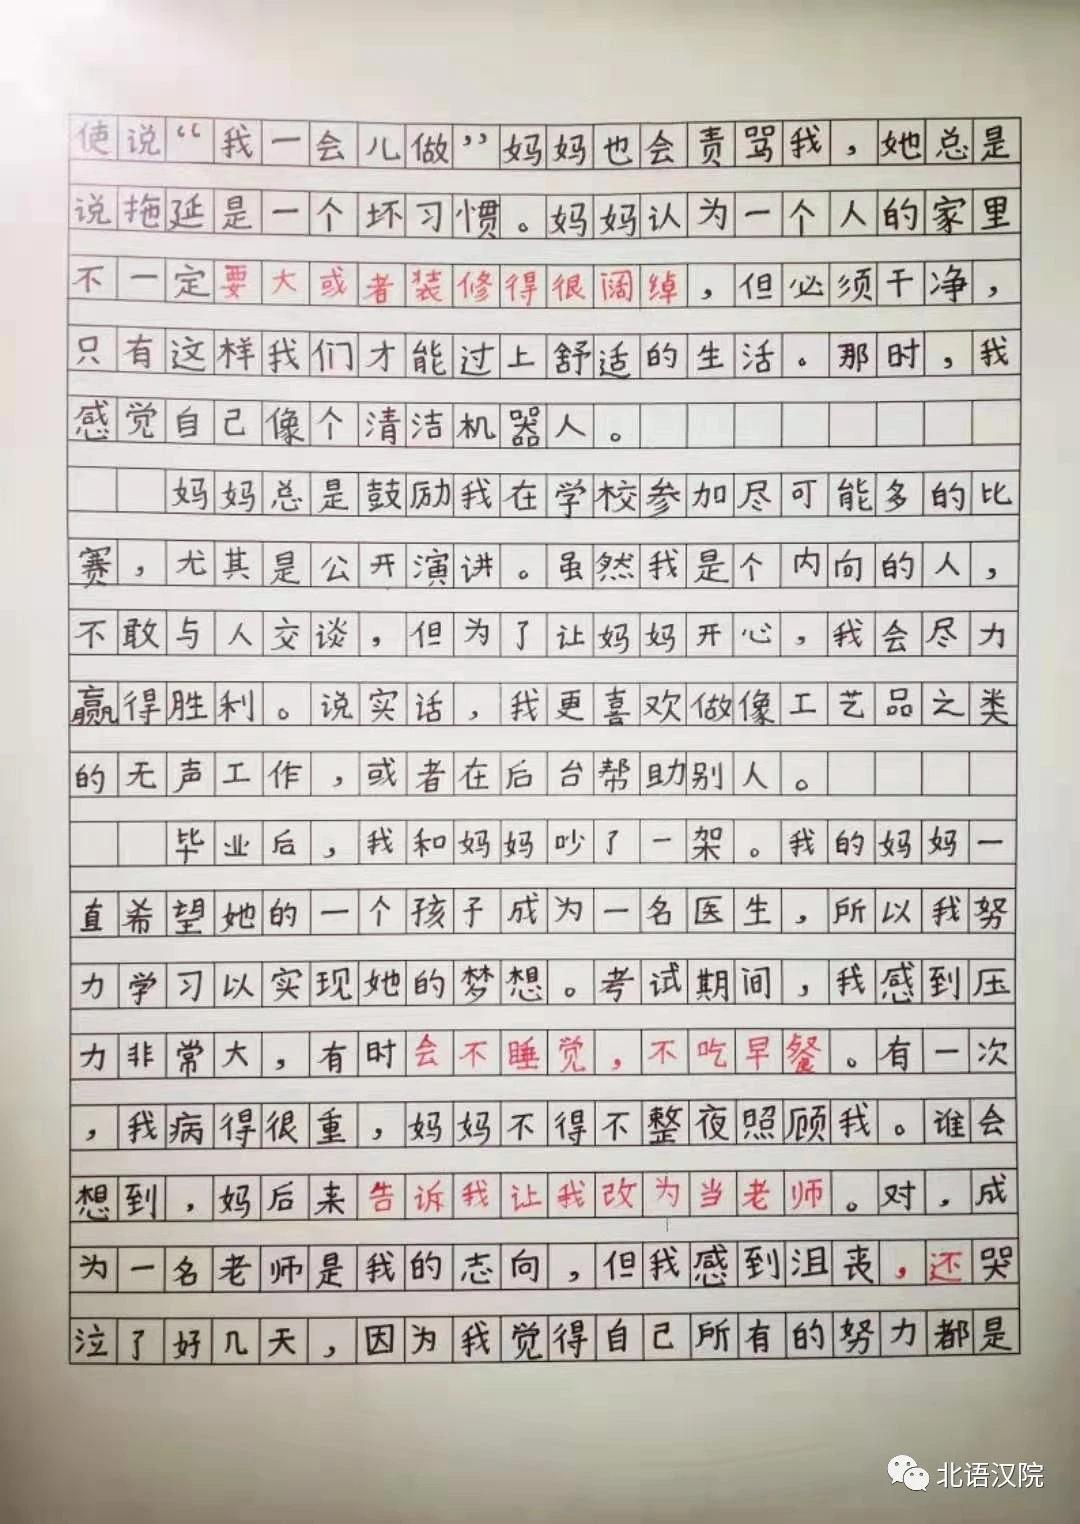 使说“我一会儿做”妈妈也会责骂我，她总是
说拖延是一个坏习惯。妈妈认为一个人的家里
不一定要大或者装修得很阔绰，但必须干净，
只有这样我们才能过上舒适的生活。那时，我
感觉自己像个清洁机器人。
妈妈总是鼓励我在学校参加尽可能多的比
赛，尤其是公开演讲。虽然我是个内向的人，
不敢与人交谈，但为了让妈妈开心，我会尽力
赢得胜利。说实话，我更喜欢做像工艺品之类
的无声工作，或者在后台帮助别人。
毕业后，我和妈妈吵了一架。我的妈妈一
直希望她的一个孩子成为一名医生，所以我努
力学习以实现她的梦想。考试期间，我感到压
力非常大，有时会不睡觉，不吃早餐。有一次
，我病得很重，妈妈不得不整夜照顾我。谁会
想到，妈后来告诉我让我改为当老师。对，成
为一名老师是我的志向，但我感到沮丧，还哭
泣了好几天，因为我觉得自己所有的努力都是
北语汉院